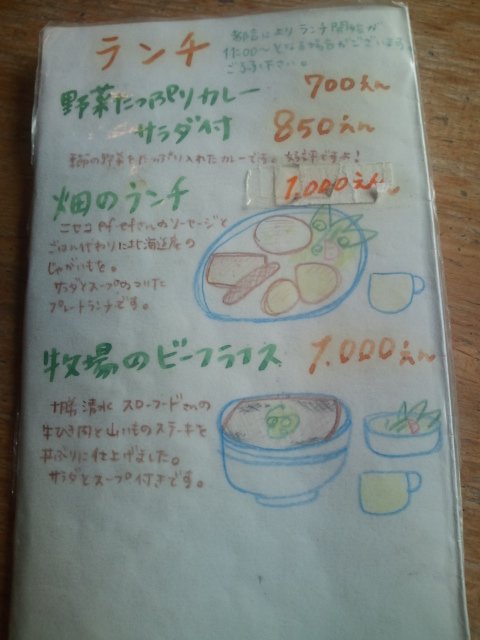 ランチ
都合によりランチ開始が
11:00〜となる場合がございます
ご了承下さい。
野菜たっぷりカレー 700えん
サラダ付 850えん
季節の野菜をたっぷり入れたカレーです。好評ですよ!
畑のランチ 1,000えん
ニセコ Pf-efさんのソーセージと
ごはん代わりに北海道産の
じゃがいもを。
サラダとスープのつけた
プレートランチです。
牧場のビーフライス 1,000えん
十勝清水 スローフードさんの
牛ひき肉と山いものステーキを
丼ぶりに仕上げました。
サラダとスープ付きです。